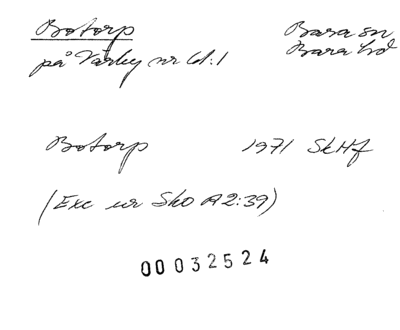 Botorp
Bara sn
på Värby nr 6:1
Bara hd
Botorp 1971 SkHf
(Exc ur Sko A2:39)
00032524